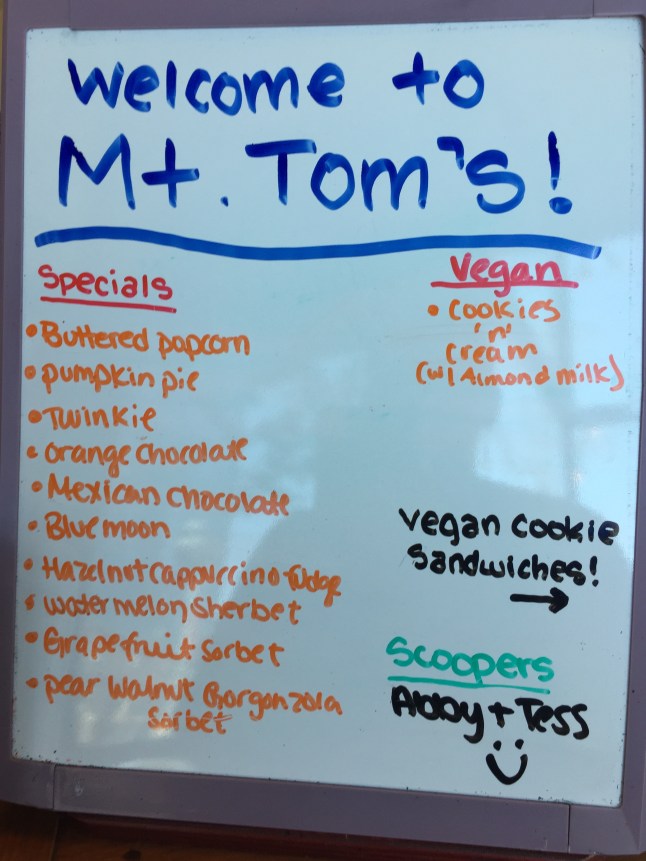 Welcome to
Mt. Tom's!
Specials
• Buttered popcorn
• pumpkin pie
• Twinkie
• orange chocolate
• Mexican chocolate
• Blue moon
• Hazelnut cappuccino fudge
• watermelon sherbet
• Grapefruit sorbet
• pear walnut Gorgonzola
sorbet
Vegan
• cookies
'n'
cream
(w/ Almond milk)
vegan cookie
sandwiches!
→
Scoopers
Abby + Tess